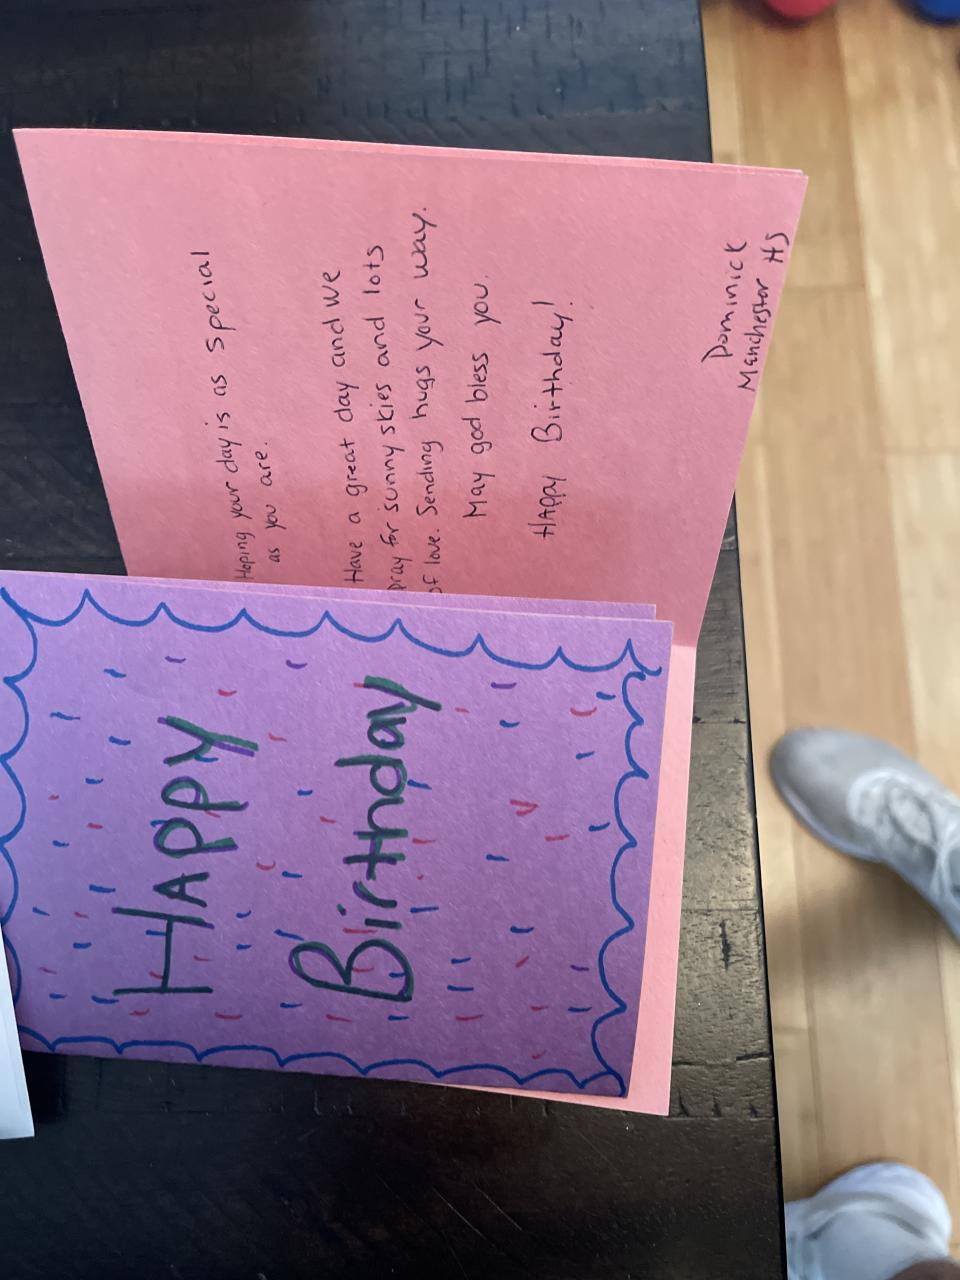 Hoping your day is as special
as you are.
Have a great day and we
pray for sunny skies and lots
of love. Sending hugs your way.
May god bless you.
HAppy Birthday!
Dominick
Manchester HS
HAppy
Birthday